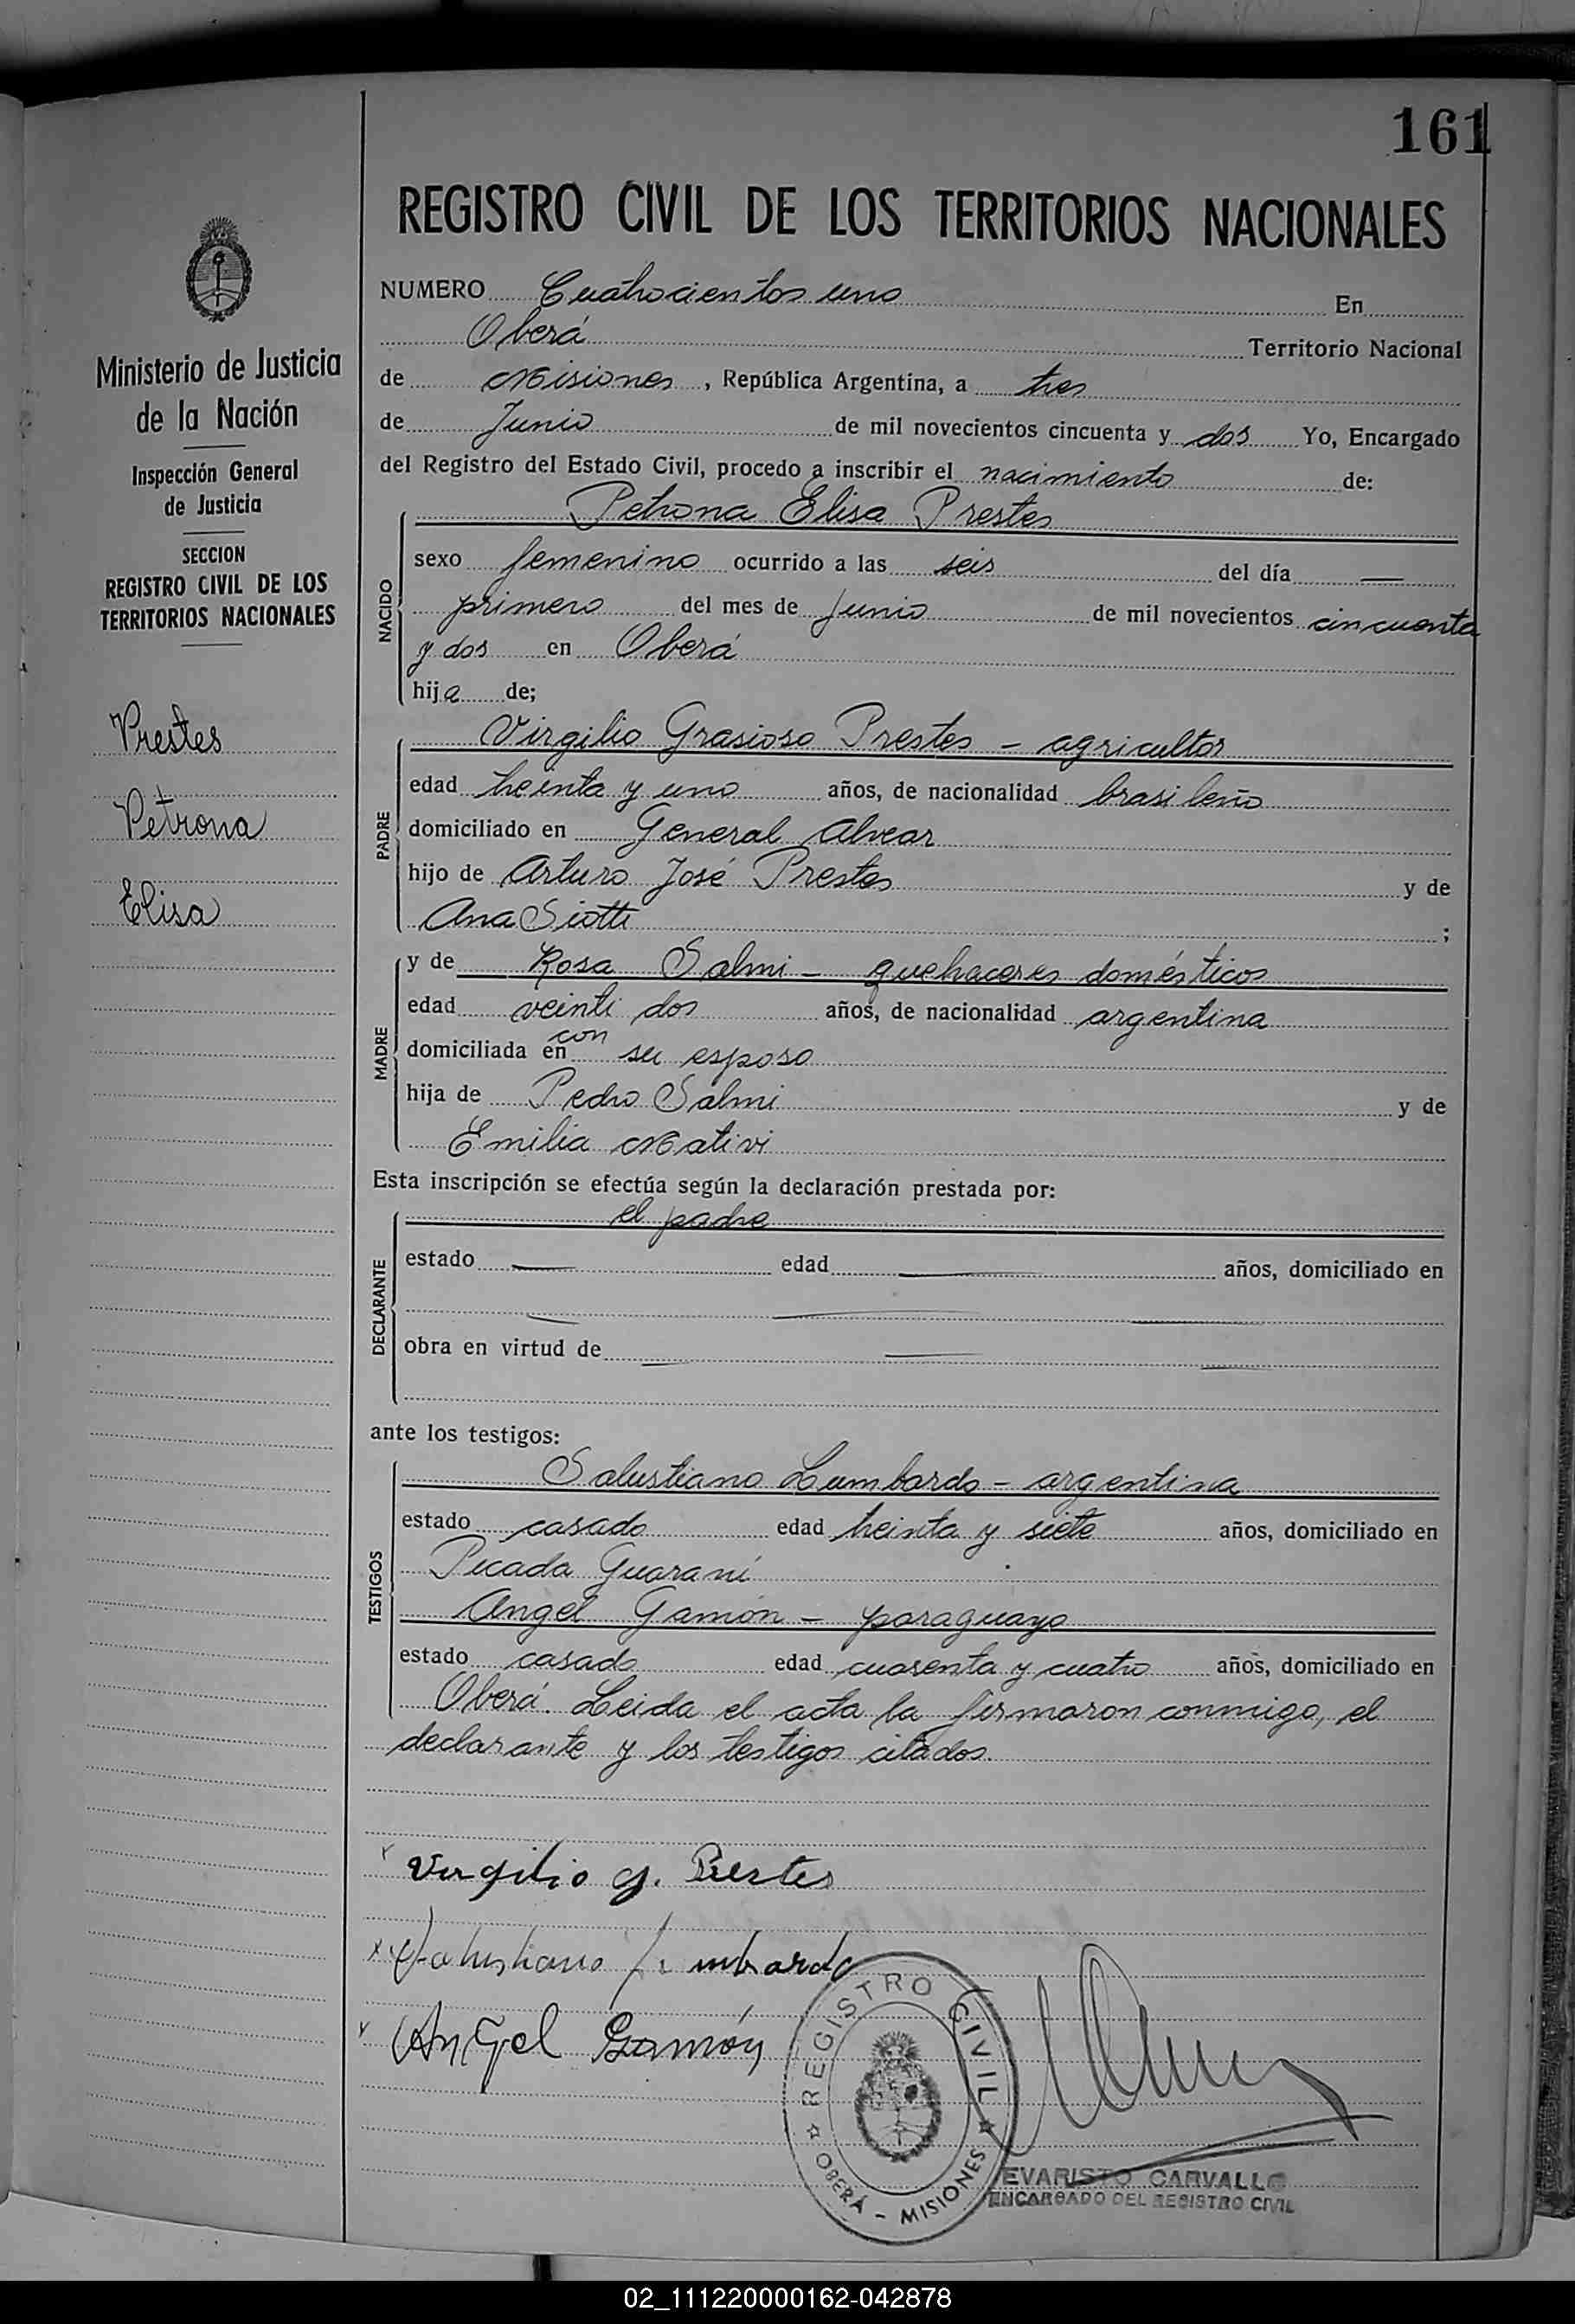 161
REGISTRO CIVIL DE LOS TERRITORIOS NACIONALES
Ministerio de Justicia
de la Nación
Inspección General
de Justicia
SECCION
REGISTRO CIVIL DE LOS
TERRITORIOS NACIONALES
Prestes
Petrona
Elisa
NUMERO Cuatrocientos uno En
Oberá Territorio Nacional
de Misiones, República Argentina, a tres
de Junio de mil novecientos cincuenta y dos Yo, Encargado
del Registro del Estado Civil, procedo a inscribir el nacimiento de:
Petrona Elisa Prestes
NACIDO
sexo femenino ocurrido a las seis del día —
primero del mes de Junio de mil novecientos cincuenta
y dos en Oberá
hija de;
Virgilio Grasioso Prestes - agricultor
PADRE
edad treinta y uno años, de nacionalidad brasileño
domiciliado en General Alvear
hijo de Arturo José Prestes y de
Ana Siotti ;
y de Rosa Salmi - quehaceres domésticos
MADRE
edad veinti dos años, de nacionalidad argentina
domiciliada en con su esposo
hija de Pedro Salmi y de
Emilia Mativi
Esta inscripción se efectúa según la declaración prestada por:
el padre
DECLARANTE
estado — edad — años, domiciliado en
— — —
obra en virtud de — — —
ante los testigos:
Salustiano Lumbardo - argentina
TESTIGOS
estado casado edad treinta y siete años, domiciliado en
Picada Guaraní
Angel Gamón - paraguayo
estado casado edad cuarenta y cuatro años, domiciliado en
Oberá. Leida el acta la firmaron conmigo, el
declarante y los testigos citados.
Virgilio G. Prestes
Salustiano Lumbardo
Angel Gamón
REGISTRO CIVIL
OBERÁ - MISIONES
EVARISTO CARVALLO
ENCARGADO DEL REGISTRO CIVIL
02_111220000162-042878